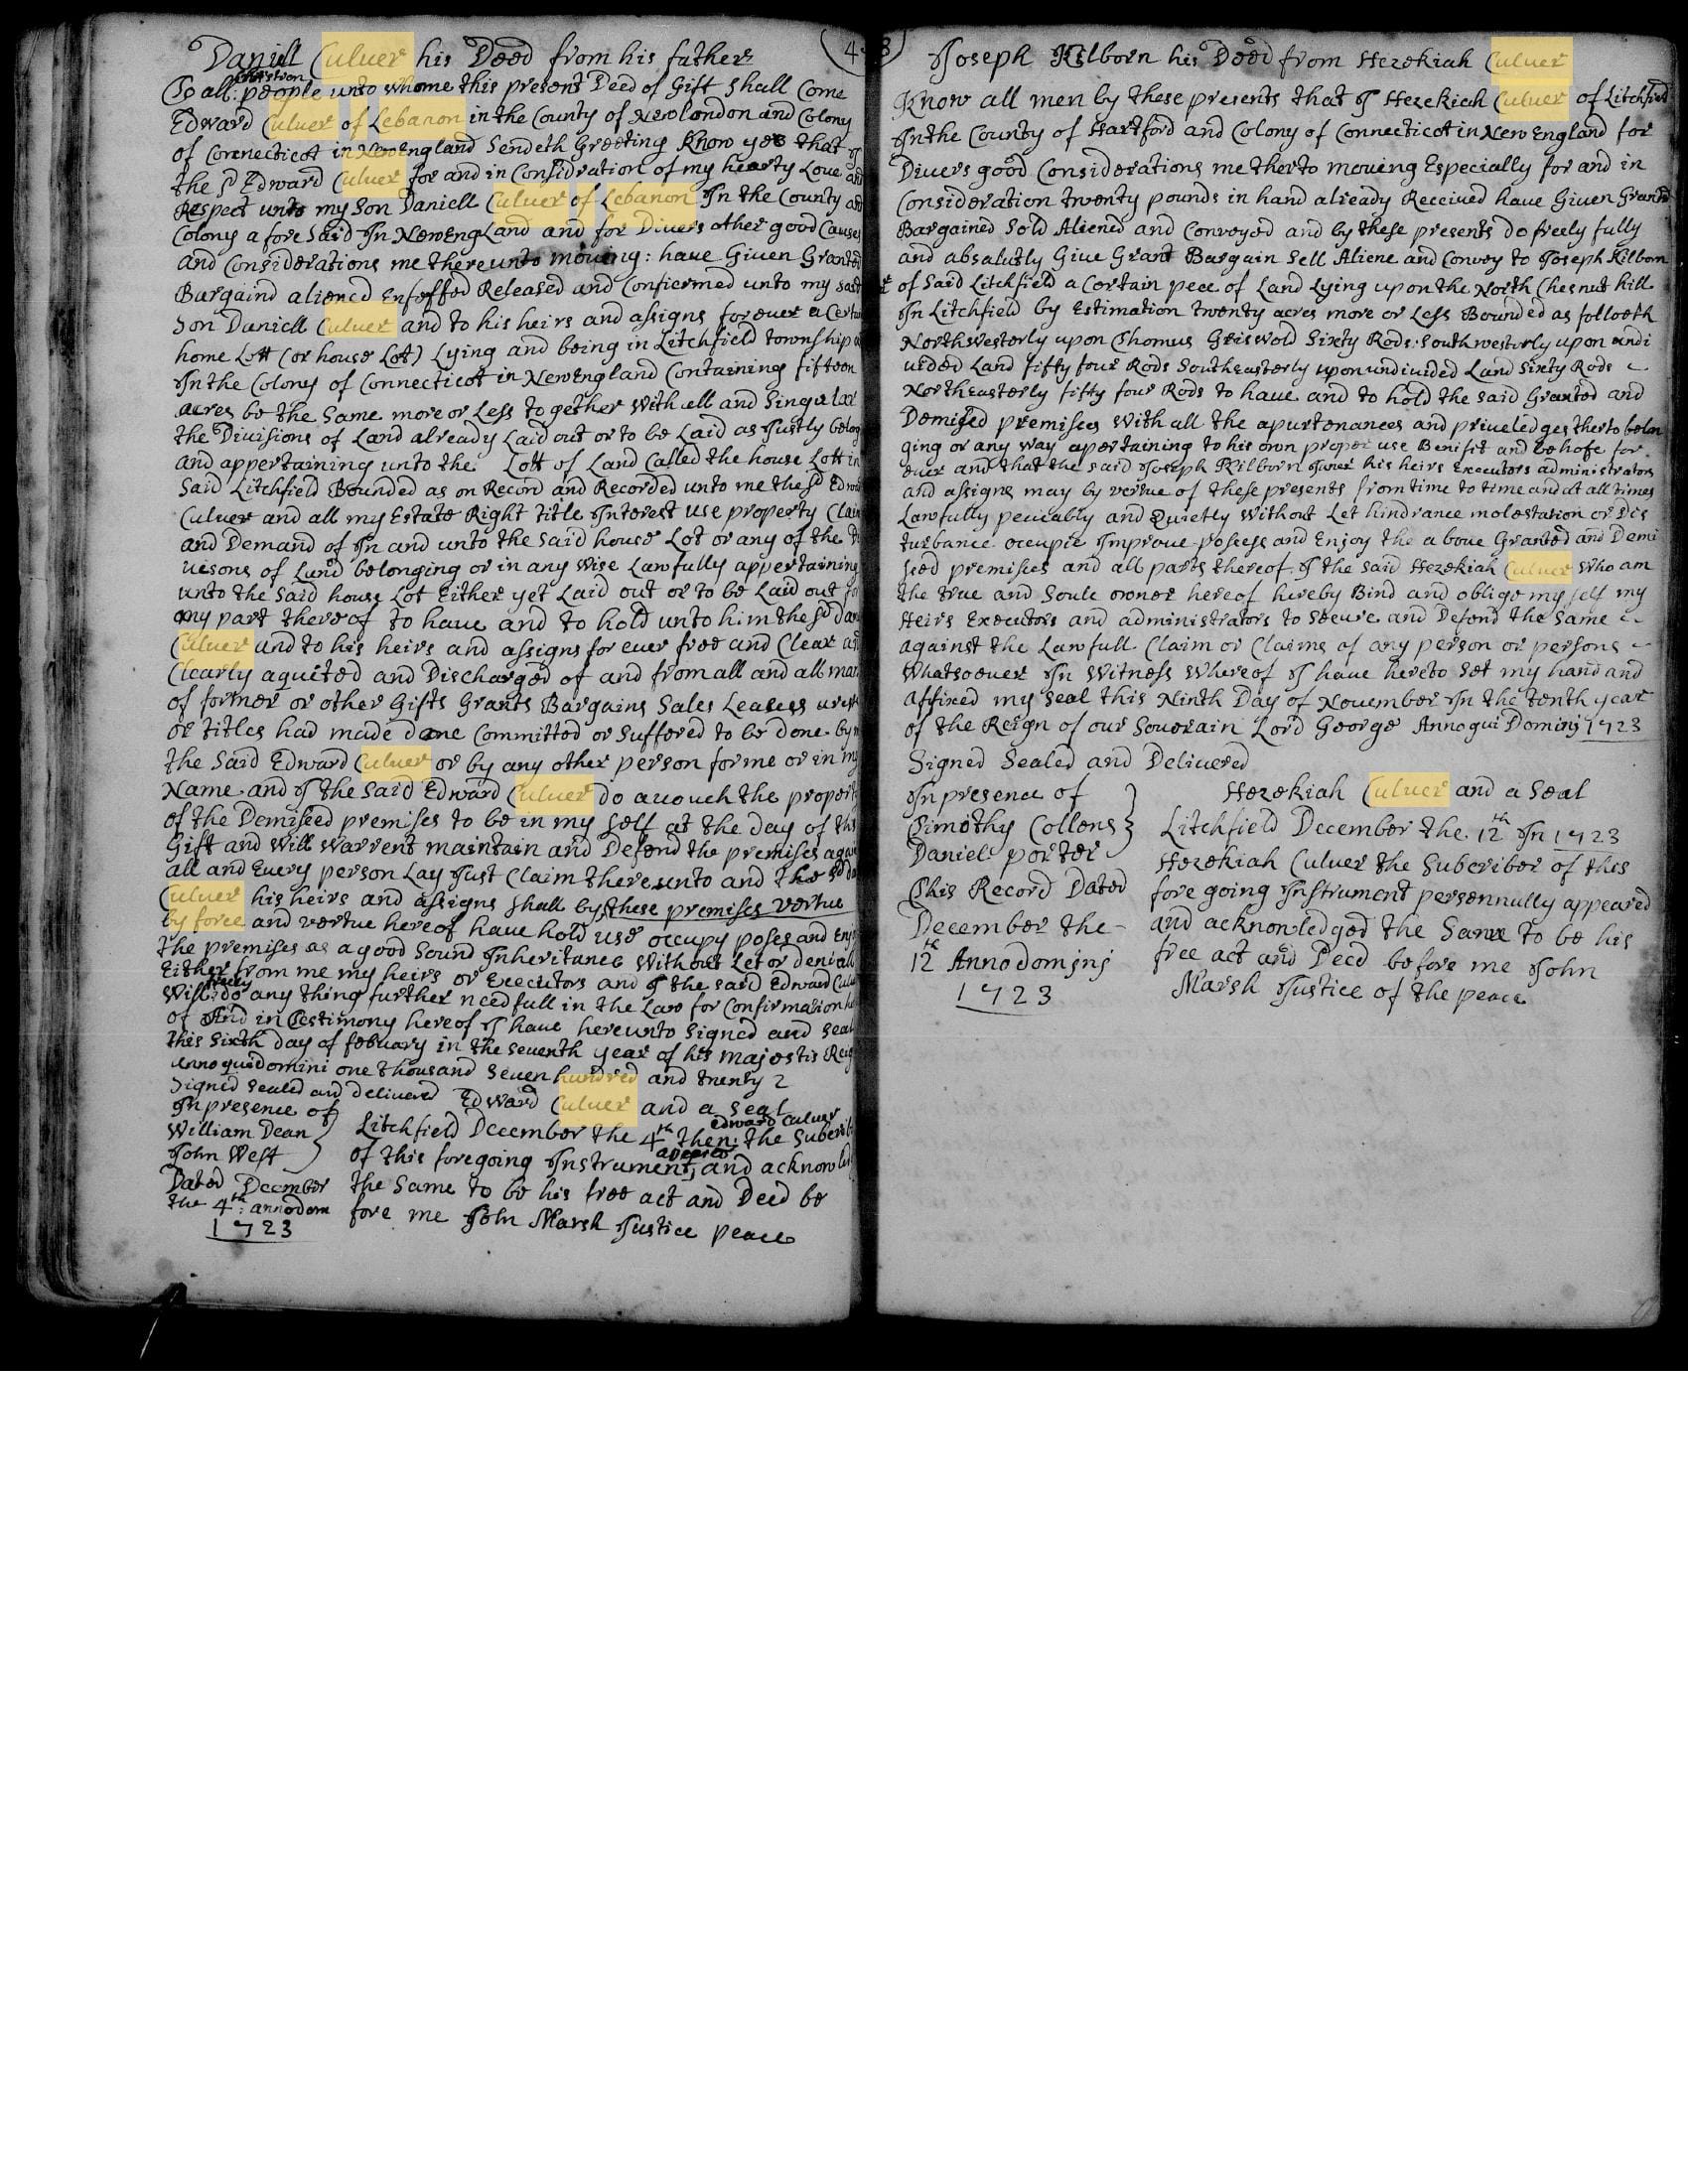 Daniell Culver his Deed from his father
To all Christian people unto whome this present Deed of Gift Shall Come
Edward Culver of Lebanon in the County of Newlondon and Colony
of Connecticot in NewEngland Sendeth Greeting Know yee that I
the sd Edward Culver for and in Considration of my hearty Love and
Respect unto my Son Daniell Culver of Lebanon In the County and
Colony a fore Said In NewEngLand and for Divers other good Causes
and Considerations me thereunto moveing: have Given Granted
Bargaind aliened Enfeffed Released and Confiermed unto my said
Son Daniell Culver and to his heirs and assigns forever a Certain
home Lott (or house Lot) Lying and being in Litchfield township
In the Colony of Connecticot in NewEngland Containing fifteen
acres be the Same more or Less to gether With all and Singular
the Divisions of Land already Laid out or to be Laid as Justly belong
and appertaining unto the Lott of Land Called the house Lott in
Said Litchfield Bounded as on Record and Recorded unto me the sd Edward
Culver and all my Estate Right title Interest use property Claim
and Demand of In and unto the said house Lot or any of the
visons of Land belonging or in any Wise Lawfully appertaining
unto the said house Lot Either yet Laid out or to be Laid out for
any part thereof to have and to hold unto him the sd Dan
Culver and to his heirs and assigns for ever free and Clear and
Clearly aquited and Discharged of and from all and all man
of former or other Gifts Grants Bargains Sales Leases
or titles had made done Committed or Suffered to be done by
the Said Edward Culver or by any other person for me or in my
Name and I the said Edward Culver do avouch the propert
of the Demiseed premises to be in my Self at the day of this
Gift and Will Warrent maintain and Defend the premises again
all and Every person Lay Just Claim thereunto and the sd Da
Culver his heirs and assigns shall by these premises vertue
by force and vertue hereof have hold use occupy poses and Enj
the premises as a good Sound Inheritance Without Let or denial
Either from me my heirs or Executors and I the said Edward Culv
Will freely do any thing further needfull in the Law for Confirmation
of And in Testimony hereof I have hereunto Signed and Seal
this Sixth day of febuary in the Seventh year of his majestis Reig
annoquedomini one thousand Seven hundred and twenty 2
Signed Sealed and delivered Edward Culver and a Seal
In presence of
William Dean
John West
Litchfield December the 4th then: Edward Culver the Subcrib
of this foregoing Instrument, apeared and acknowled
the Same to be his free act and Deed be
fore me John Marsh Justice peace
Dated December
the 4th: annodom
1723
43
Joseph Kilborn his Deed from Hezekiah Culver
Know all men by these presents that I Hezekiah Culver of Litchfield
In the County of Hartford and Colony of Connecticot in New England for
Divers good Considerations me therto moveing Especially for and in
Consideration twenty pounds in hand already Received have Given Granted
Bargained Sold Aliened and Conveyed and by these presents do freely fully
and absalutly Give Grant Bargain Sell Aliene and Convey to Joseph Kilborn
of Said Litchfield a Certain pece of Land Lying upon the North Chesnut hill
In Litchfield by Estimation twenty acres more or Less Bounded as followeth
Northwesterly upon Thomus Griswold Sixty Rods: Southwesterly upon undi
vided Land fifty four Rods Southeasterly upon undivided Land Sixty Rods
Northeasterly fifty four Rods to have and to hold the said Granted and
Demised premises With all the apurtenances and priveledges therto belon
ging or any way apertaining to his own proper use Benifit and behofe for
ever and that the said Joseph Kilborn his heirs Executors administrators
and assigns may by vertue of these presents from time to time and at all times
Lawfully peacably and Quietly Without Let hindrance molestation or Dis
turbance occupie Improve posess and Enjoy the above Granted and Demi
sed premises and all parts thereof I the said Hezekiah Culver Who am
the true and Soule owner hereof hereby Bind and oblige my self my
Heirs Executors and administrators to Secure and Defend the same
against the Lawfull Claim or Claims of any person or persons
Whatsoever In Witness Whereof I have hereto Set my hand and
affixed my Seal this Ninth Day of November In the tenth year
of the Reign of our Soverain Lord George Annoqui Dominj 1723
Signed Sealed and Delivered
In presence of
Timothy Collens
Daniel porter
This Record Dated
December the
12th Anno dominj
1723
Hezekiah Culver and a Seal
Litchfield December the 12th In 1723
Hezekiah Culver the Subcriber of this
fore going Instrument personnully appeared
and acknowledged the Same to be his
free act and Deed before me John
Marsh Justice of the peace